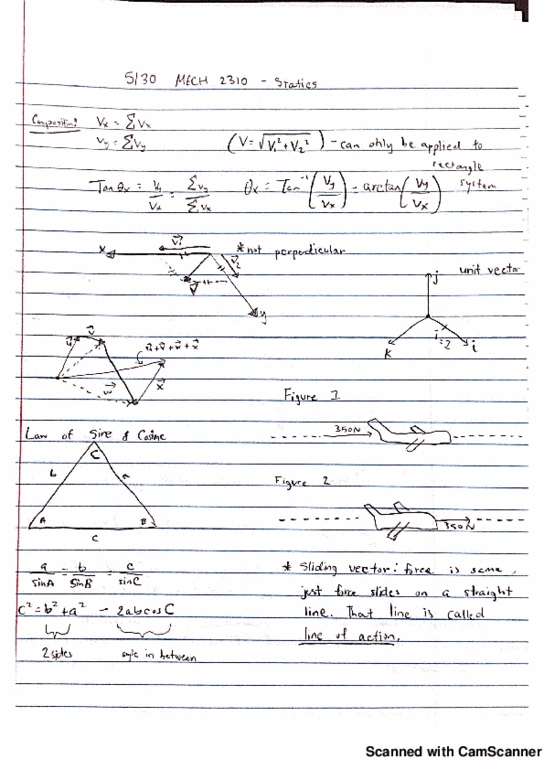 5/30 MECH 2310 - Statics
Composition: Vx = ΣVx
Vy = ΣVy (V = √V₁² + V₂²) - can only be applied to
rectangle
system
Tan θx = Vy/Vx = ΣVy/ΣVx θx = Tan⁻¹(Vy/Vx) = arctan(Vy/Vx)
x V₁ * not perpendicular
V₂
V
y
j unit vector
k i=2 i
u v u+v+w+x
w x
Figure 1
350N
Law of Sine & Cosine
C
b a
A B
c
Figure 2
350N
a/sinA = b/sinB = c/sinC
c² = b² + a² - 2abcosC
2 sides angle in between
* Sliding vector: force is same,
just force slides on a straight
line. That line is called
line of action.
Scanned with CamScanner